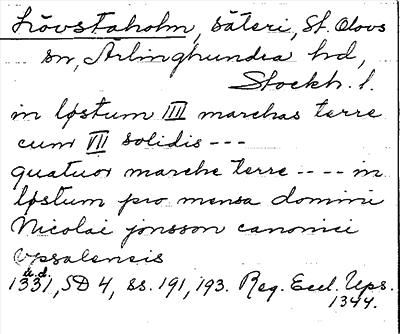 Lövstaholm, säteri, St. Olovs
sn, Ärlinghundra hd,
Stockh. l.
in løstum III marchas terre
cum VII solidis ---
quatuor marche terre ---- in
løstum pro mensa domini
Nicolai jonsson canonici
Vpsalensis
u.d.
1331, SD 4, ss. 191, 193. Reg. Eccl. Ups.
1344.